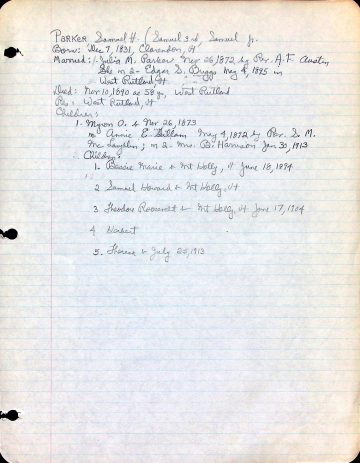 PARKER Samuel H. (Samuel 3rd, Samuel Jr.
Born: Dec 7, 1831, Clarendon, Vt
Married: 1- Julia M. Parker Nov 26, 1872 by Rev. A.F. Austin,
She m 2- Edgar S. Buggs May 4, 1895 in
West Rutland, Vt
Died: Nov 10, 1890 ae 58 yr, West Rutland
Res: West Rutland, Vt
Children:
1- Myron O. b Nov 26, 1873
m Annie E. May 4, 1892 by Rev. S. M.
m 2- Mrs. B. Harrison Jan 30, 1913
Children:
1. Bessie Marie b Mt Holly, Vt June 18, 1894
2 Samuel Howard b Mt Holly, Vt
3. Theodore Roosevelt b Mt Holly, Vt June 17, 1904
4 Herbert
5. Theresa b July 25, 1913